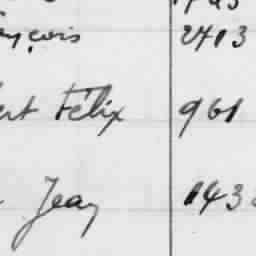 nçois 2413
ert Félix 961
Jean 143